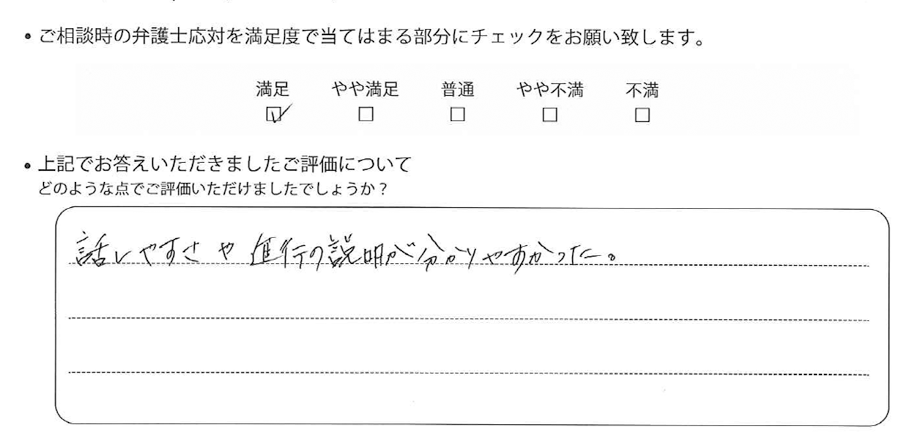 ・ご相談時の弁護士応対を満足度で当てはまる部分にチェックをお願い致します。
満足 やや満足 普通 やや不満 不満
☑ ☐ ☐ ☐ ☐
・上記でお答えいただきましたご評価について
どのような点でご評価いただけましたでしょうか？
話しやすさや進行の説明が分かりやすかった。